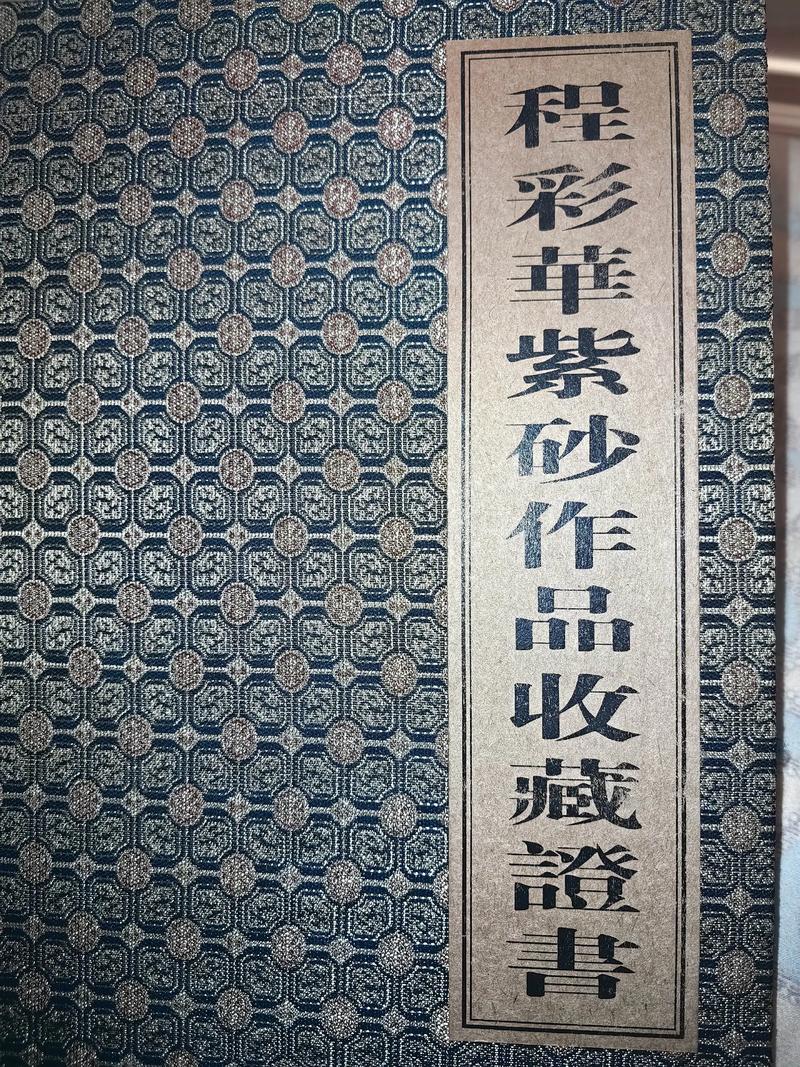 程彩華紫砂作品收藏證書